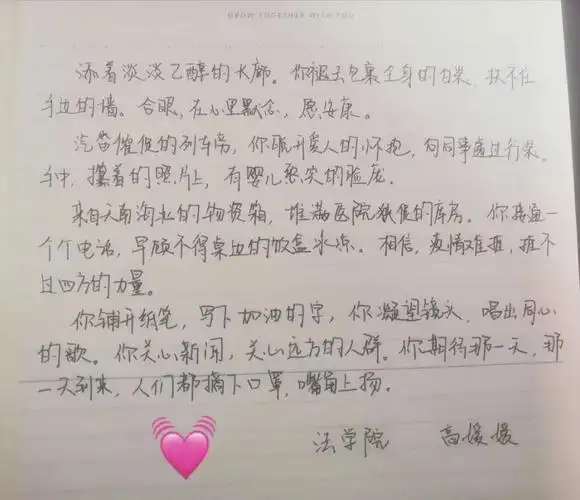 GROW TOGETHER WITH YOU
添着淡淡乙醇的长廊。你褪去包裹全身的白装,扶不住
手边的墙。合眼,在心里默念,愿安康。
汽笛催促的列车旁,你脱开爱人的怀抱,向同事递过行装。
手中,攥着的照片上,有婴儿憨实的脸庞。
来自天南海北的物资箱,堆满医院狭促的库房。你接通一
个个电话,早顾不得桌边的饭盒冰凉。相信,疫情难挡,挡不
过四方的力量。
你铺开纸笔,写下加油的字,你凝望镜头,唱出同心
的歌。你关心新闻,关心远方的人群。你期待那一天,那
一天到来,人们都摘下口罩,嘴角上扬。
法学院 高媛媛